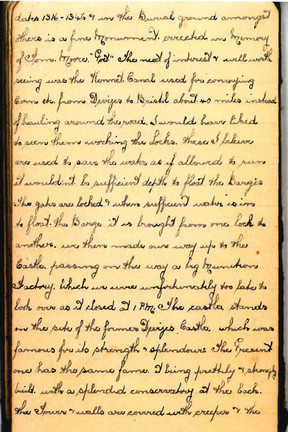 dates 1316-1346 & in the Burial ground amongst
others is a fine Monument, errected in Memory
of Toms. More, "Poet" The next of interest & well worth
seeing was the Kennet Canal used for conveying
Corn etc. from Devizes to Bristol about 40 miles instead
of hauling around the road, I would have liked
to seen them working the Locks. these I believe
are used to save the water as if allowed to run
it wouldint be sufficient depth to float the Barges
The gates are locked & when suffecient water is in
to float the Barge it is brought from one lock to
another, we then made our way up to the
Castle, passing on the way a big Munitions
Factory, which we were unfortunately too late to
look over as it closed at 1 PM. The castle stands
on the site of the former Devizes Castle, which was
famous for its strength & splendour. The Present
one has the same fame, it being prettily & strongly
built, with a splendid conservatory at the back.
the Tower & walls are covered with creeper & the